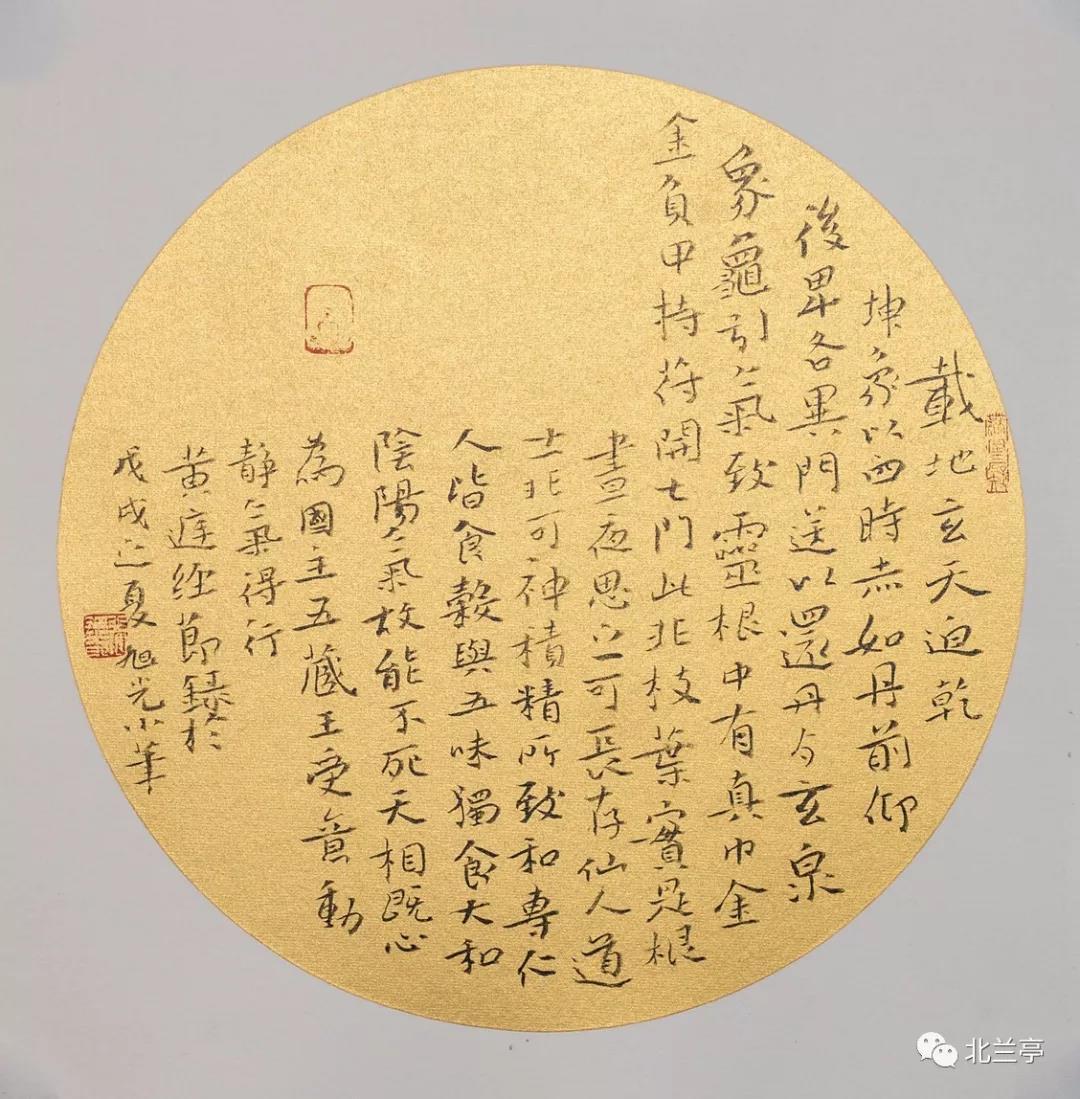 戴地玄天迫乾
坤象以四時赤如丹前仰
後卑各異門送以還丹与玄泉
象龜引氣致靈根中有真巾金
金負甲持符開七門此非枝葉實是根
晝夜思之可長存仙人道
士非可神積精所致和專仁
人皆食穀與五味獨食大和
陰陽氣故能不死天相既心
為國主五藏王受意動
靜氣得行
黄庭經節錄於
戊戌之夏旭光小筆
北兰亭